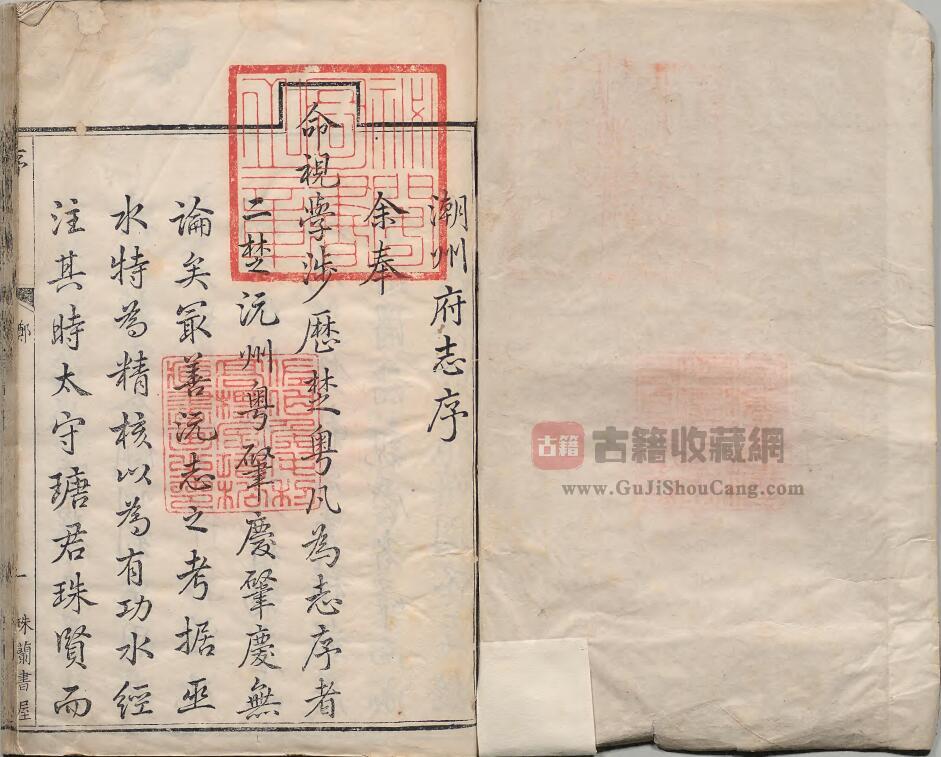 潮州府志序
余奉
命視學涉歷楚粵凡為志序者
二楚沅州粵肇慶肇慶無
論矣冣善沅志之考据巫
水特為精核以為有功水經
注其時太守瑭君珠賢而
序
鄭
一
珠蘭書屋
古籍
古籍收藏網
www.GuJiShouCang.com